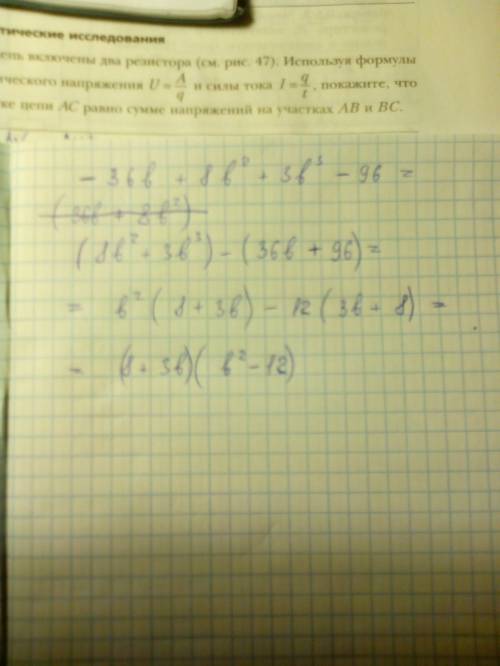 тические исследования
епь включены два резистора (см. рис. 47). Используя формулы
ического напряжения U = A/q и силы тока I = q/t, покажите, что
ке цепи AC равно сумме напряжений на участках AB и BC.
- 36b + 8b² + 3b³ - 96 =
(36b + 8b²)
(8b² + 3b³) - (36b + 96) =
= b² (8 + 3b) - 12 (3b + 8) =
- (8 + 3b)(b² - 12)